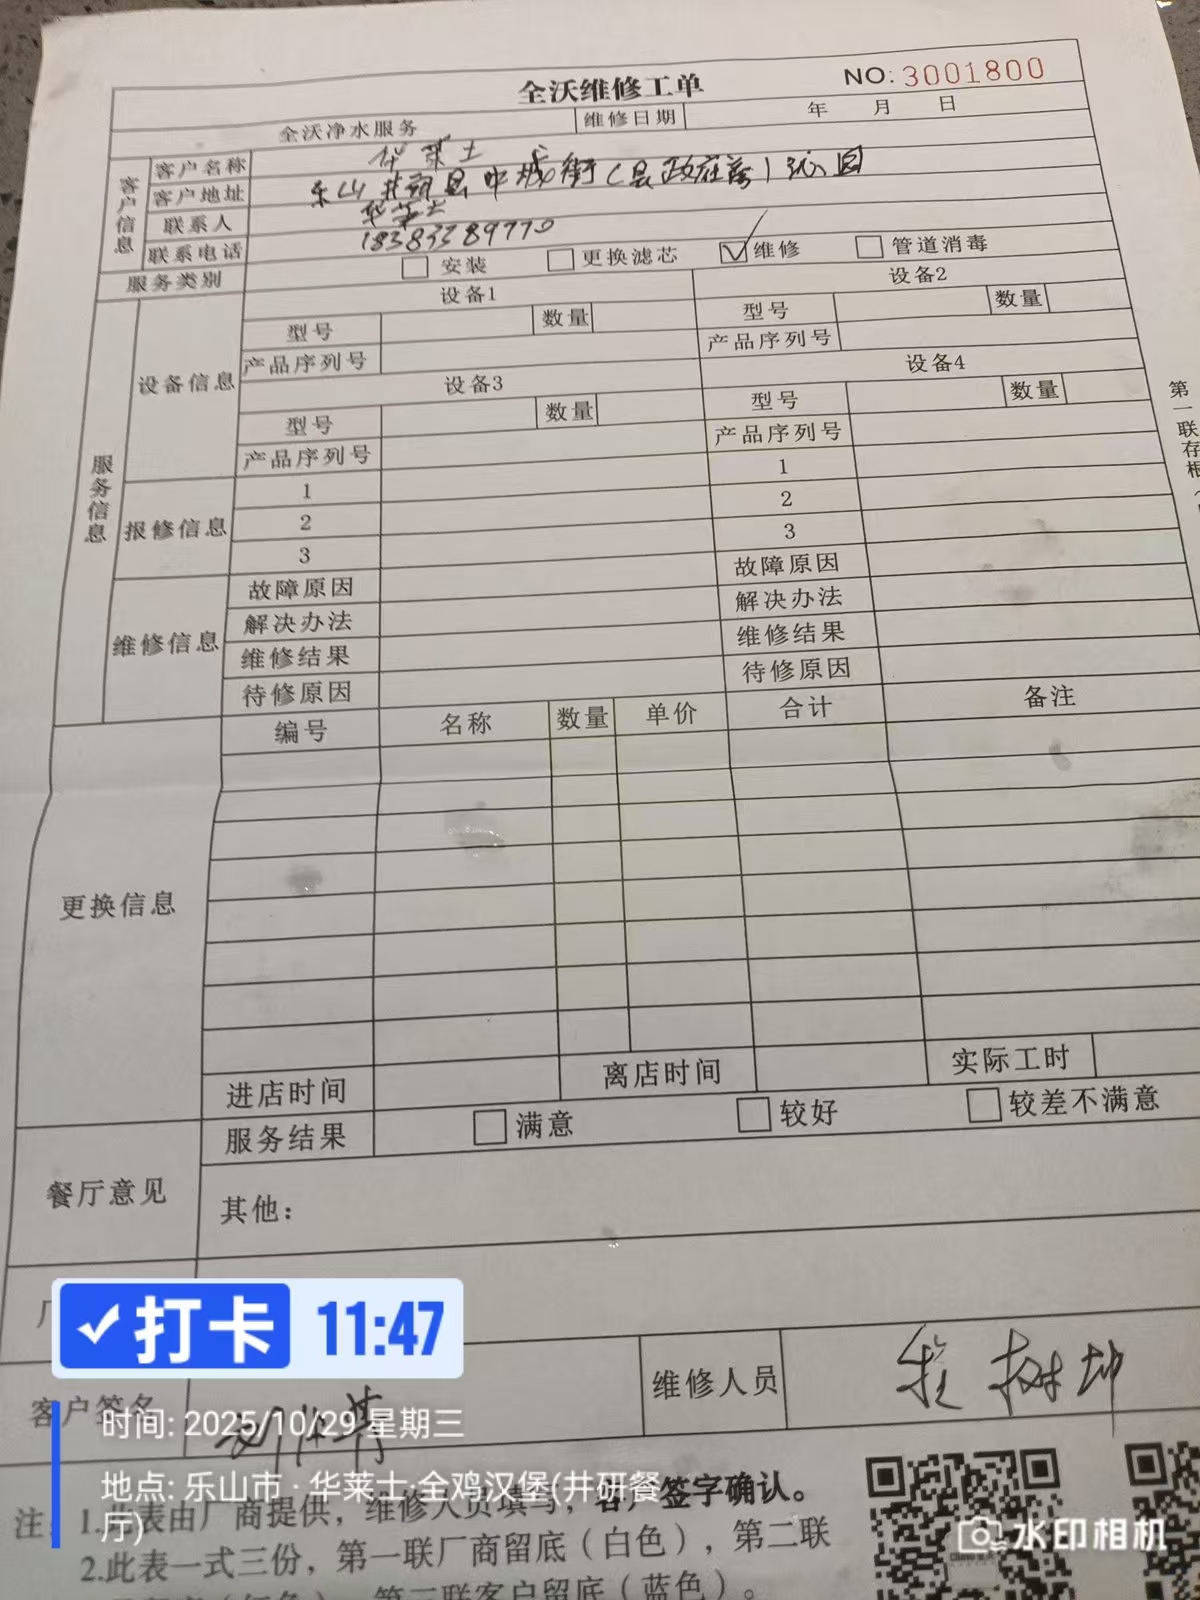 全沃维修工单
NO: 3001800
全沃净水服务 维修日期 年 月 日
客户信息
客户名称 华莱士
客户地址 乐山井研县中城街(县政府旁)
联系人 华莱士
联系电话 18383389770
服务类别 安装 更换滤芯 维修 管道消毒
服务信息
设备信息
设备1 设备2
型号 数量 型号 数量
产品序列号 产品序列号
设备3 设备4
型号 数量 型号 数量
产品序列号 产品序列号
报修信息
1 1
2 2
3 3
维修信息
故障原因 故障原因
解决办法 解决办法
维修结果 维修结果
待修原因 待修原因
更换信息
编号 名称 数量 单价 合计 备注
进店时间 离店时间 实际工时
餐厅意见
服务结果 满意 较好 较差不满意
其他:
厂
客户签名 维修人员 树坤
注: 1.此表由厂商提供,维修人员填写,客户签字确认。
2.此表一式三份,第一联厂商留底(白色),第二联
第三联客户留底(蓝色)。
第一联存根
打卡 11:47
时间: 2025/10/29 星期三
地点: 乐山市·华莱士·全鸡汉堡(井研餐
厅)
水印相机